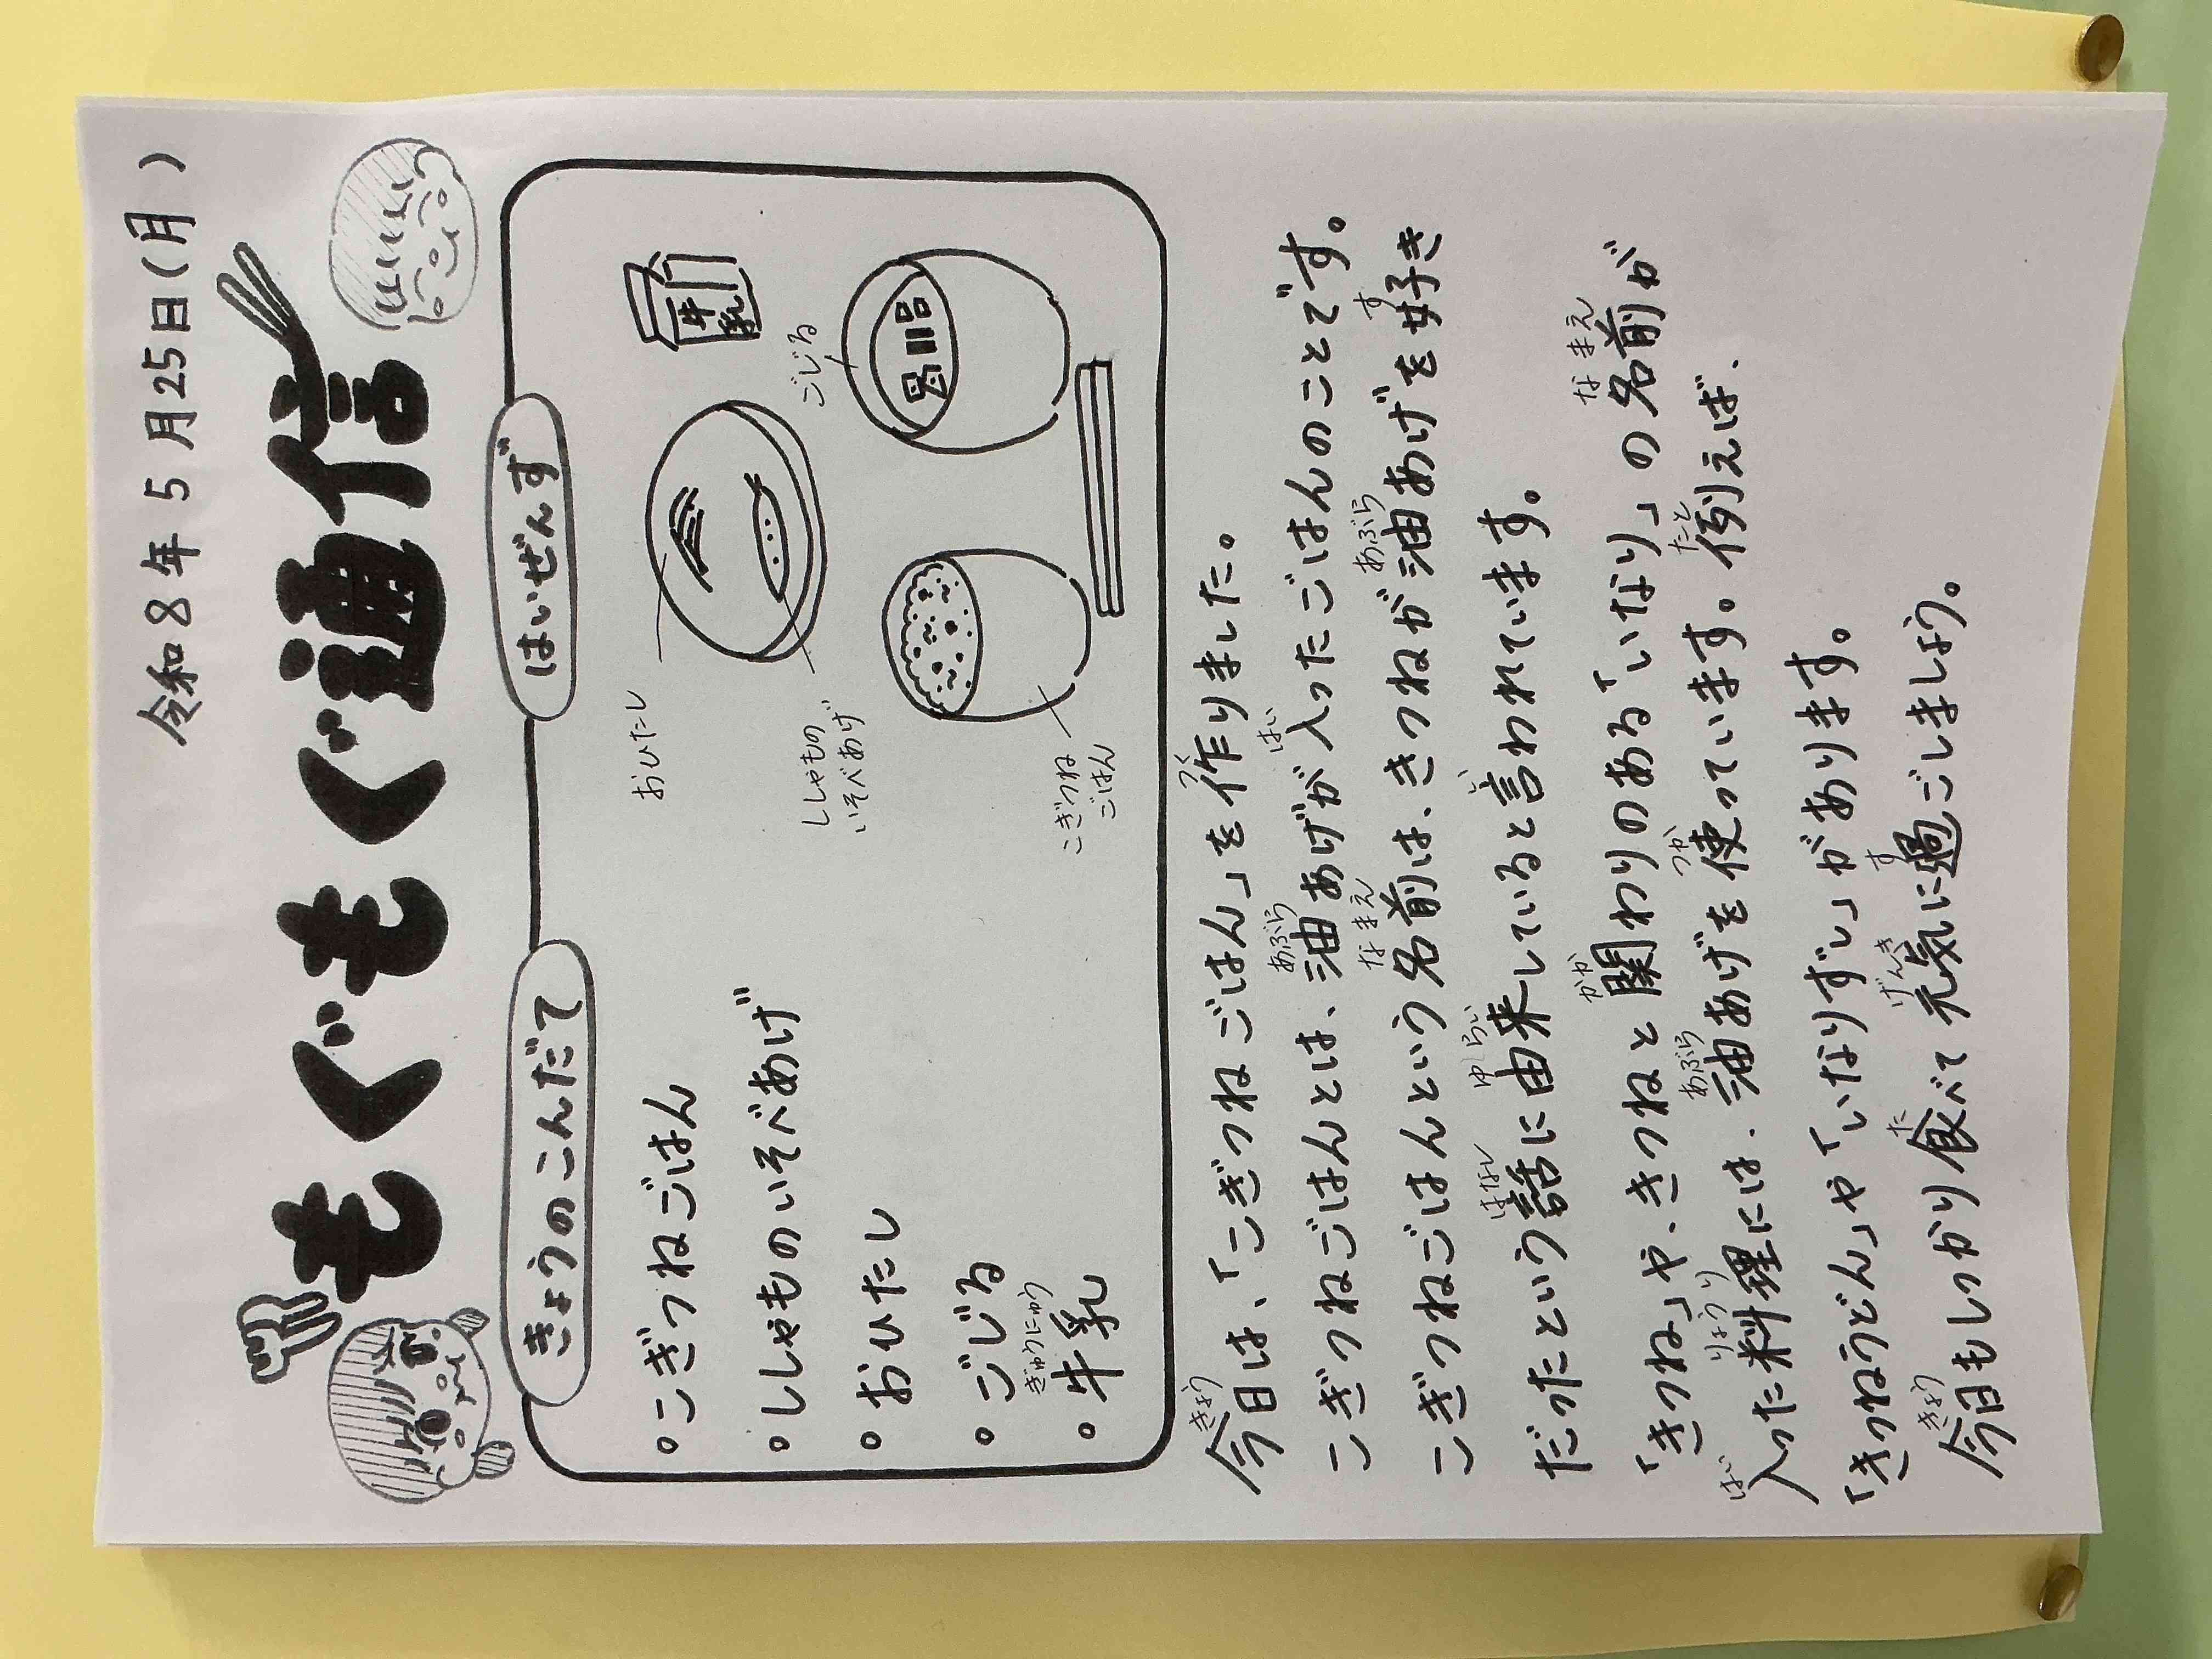 令和8年5月25日(月)
もぐもぐ通信
きょうのこんだて
• こぎつねごはん
• ししゃものいそべあげ
• おひたし
• ごじる
ぎゅうにゅう
• 牛乳
はいぜんず
おひたし
牛乳
ししゃもの
いそべあげ
ごじる
こぎつね
ごはん
きょう つく
今日は、「こぎつねごはん」を作りました。
あぶら はい
こぎつねごはんとは、油あげが入ったごはんのことです。
なまえ あぶら す
こぎつねごはんという名前は、きつねが油あげを好き
はなし ゆらい い
だったという話に由来していると言われています。
かか なまえ
「きつね」や、きつねと関わりのある「いなり」の名前が
はい りょうり あぶら つか たと
入った料理には、油あげを使っています。例えば、
「きつねうどん」や「いなりずし」があります。
きょう た げんき す
今日もしっかり食べて元気に過ごしましょう。